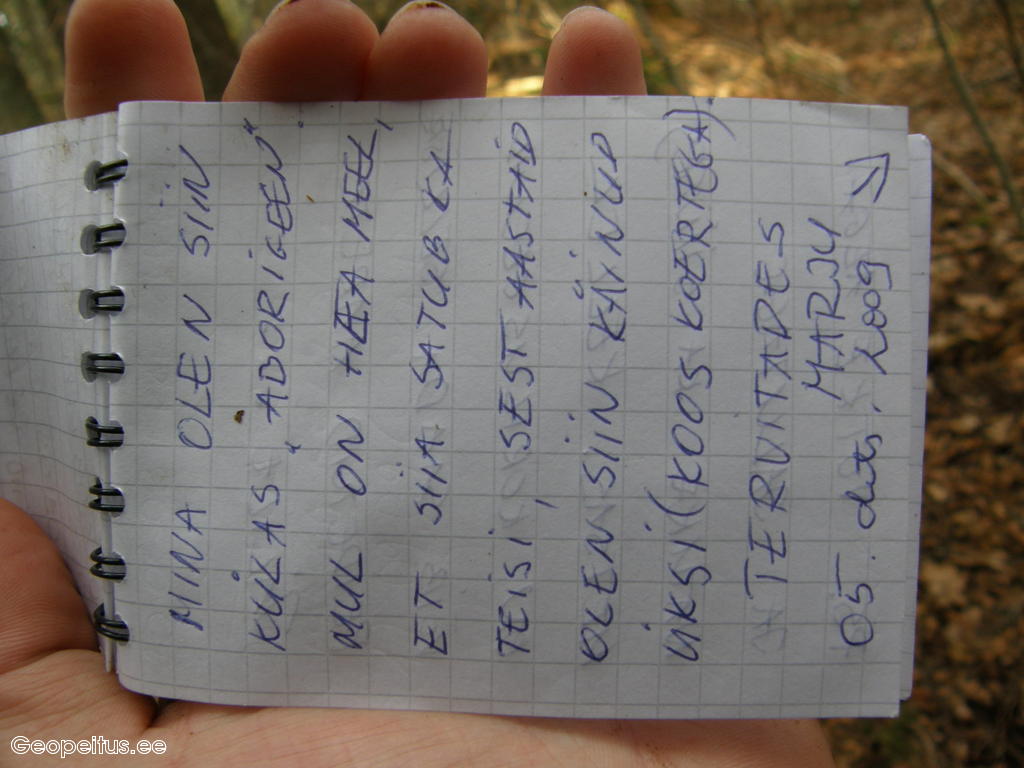 MINA OLEN SIIN
KÜLAS „ABORIGEEN"
MUL ON HEA MEEL,
ET SIIA SATUB KA
TEISI, SEST AASTAID
OLEN SIIN KÄINUD
ÜKSI (KOOS KOERTEGA).
TERVITADES
MARJU
05. dets. 2009
Geopeitus.ee